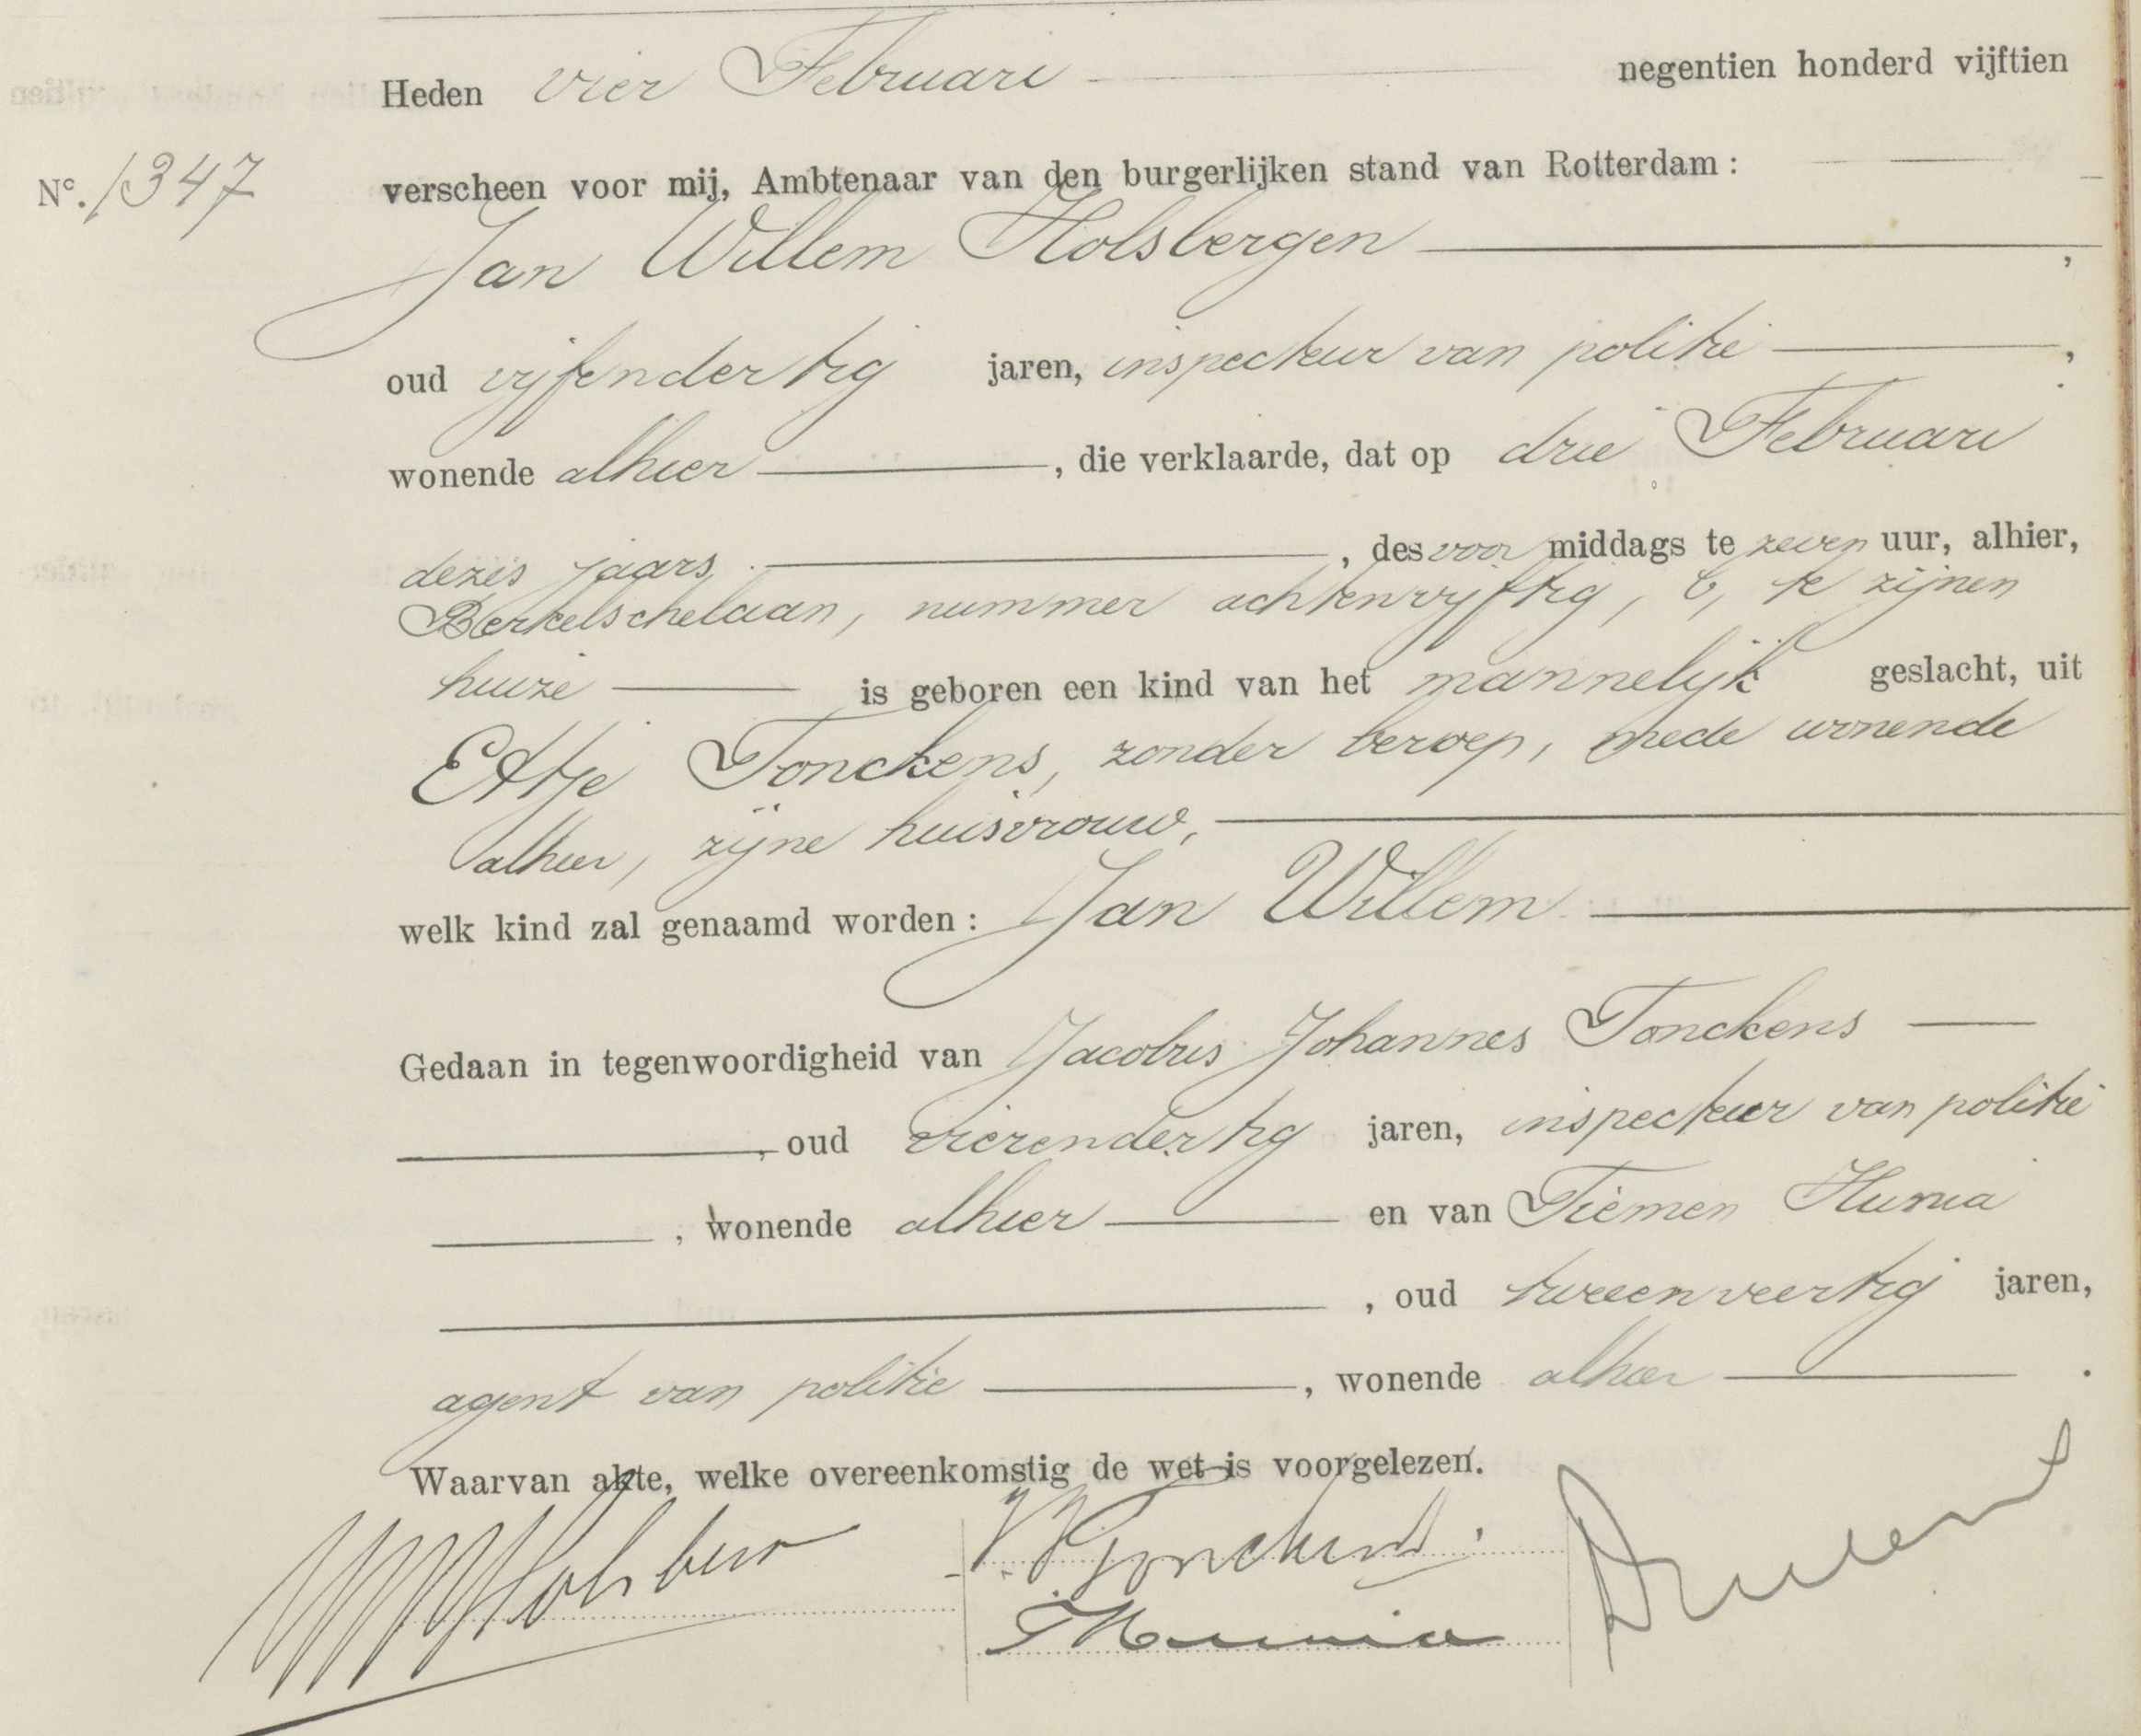 Heden vier Februari negentien honderd vijftien
No. 1347
verscheen voor mij, Ambtenaar van den burgerlijken stand van Rotterdam:
Jan Willem Holsbergen,
oud vijfendertig jaren, inspecteur van politie,
wonende alhier, die verklaarde, dat op drie Februari
dezes jaars, des voormiddags te zeven uur, alhier,
Berkelschelaan, nummer achtenvijftig, b, te zijnen
huize is geboren een kind van het mannelijk geslacht, uit
Ettje Tonckens, zonder beroep, mede wonende
alhier, zijne huisvrouw,
welk kind zal genaamd worden: Jan Willem
Gedaan in tegenwoordigheid van Jacobus Johannes Tonckens
, oud vierendertig jaren, inspecteur van politie
, wonende alhier en van Tiemen Hunia
, oud tweeenveertig jaren,
agent van politie, wonende alhier.
Waarvan akte, welke overeenkomstig de wet is voorgelezen.
JJTonckens.
THunia